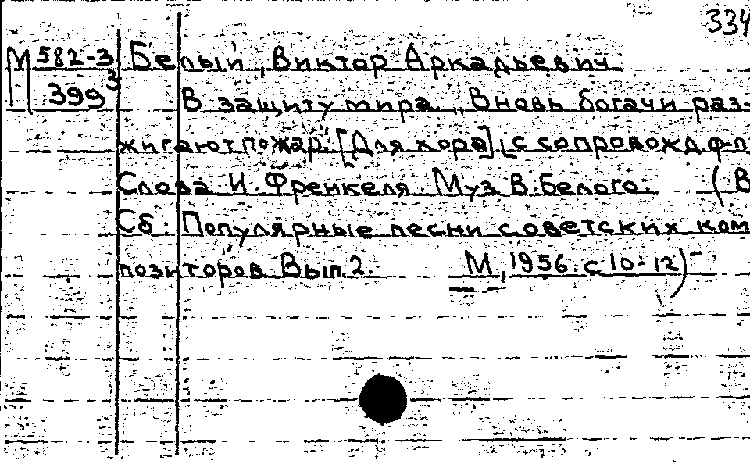 334
М 582-3 Белый, Виктор Аркадьевич
399 3 В защиту мира. "Вновь богачи раз-
жигают пожар." [Для хора] с сопровожд. ф-п
Слова И. Френкеля. Муз. В. Белого. (В
Сб: Популярные песни советских ком
позиторов. Вып. 2. М., 1956. с 10-12)